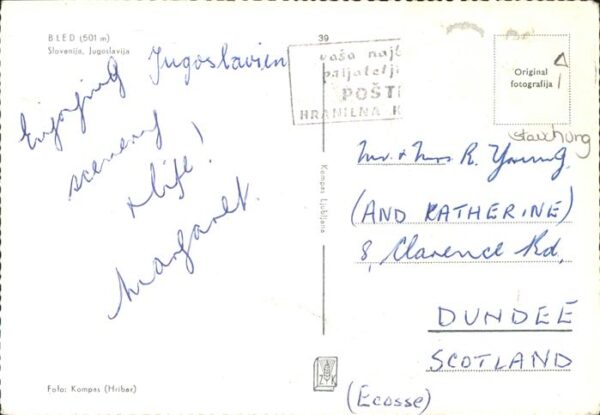 BLED (501 m)
Slovenija, Jugoslavija
Enjoying Jugoslavien
scenery
& life!
Margaret.
Foto: Kompas (Hribar)
39
Kompas Ljubljana
vaša najb
prijatelji
POŠT
HRANILNA K
Original
fotografija
Mr. & Mrs R. Young.
(AND KATHERINE)
8, Clarence Rd,
DUNDEE
SCOTLAND
(Ecosse)